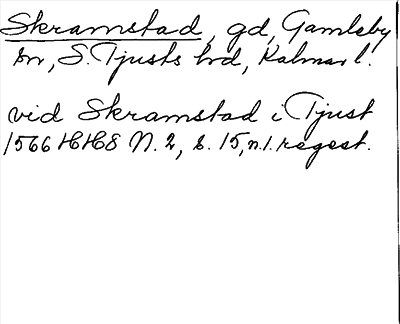 Skramstad, gd, Gamleby
sn, S. Tjusts hd, Kalmar l.
vid Skramstad i Tjust
1566 HH8 N. 2, s. 15, n. 1. regest.